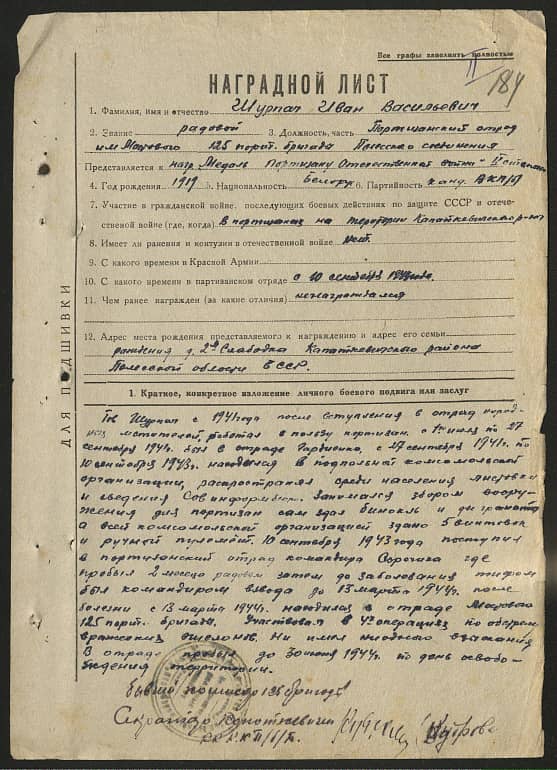 Все графы заполнять полностью
II
184
НАГРАДНОЙ ЛИСТ
1. Фамилия, имя и отчество Шурпач Иван Васильевич
2. Звание рядовой 3. Должность, часть Партизанский отряд
им Махового 125 парт. бригада Полесского соединения
Представляется к нагр. Медаль Партизану Отечественной войны - II степени
4. Год рождения 1919 5. Национальность Белорус 6. Партийность канд. ВКП/б/
7. Участие в гражданской войне, последующих боевых действиях по защите СССР и отече-
ственной войне (где, когда) В партизанах на территории Копаткевичского р-на
8. Имеет ли ранения и контузии в отечественной войне нет.
9. С какого времени в Красной Армии
10. С какого времени в партизанском отряде с 10 сентября
11. Чем ранее награжден (за какие отличия) ненаграждался
12. Адрес места рождения представляемого к награждению и адрес его семьи
рождения д. 2ая Слободка Копаткевичского района
Полесской области БССР.
ДЛЯ ПОДШИВКИ
1. Краткое, конкретное изложение личного боевого подвига или заслуг
Тов Шурпач с 1941 года после вступления в отряд народ-
ных мстителей, работал в пользу партизан. с по 27
сентября 1941. был в отряде с 27 сентября 1941г. по
10 сентября 1943г. находился в подпольной комсомольской
организации, распространял среди населения листовки
и сведения Совинформбюро. Занимался сбором воору-
жения для партизан сам сдал бинокль и граната
а всей комсомольской организацией здано 5 винтовок
и ручной пулемёт. 10 сентября 1943 года поступил
в партизанский отряд командира где
пробыл 2 месяца рядовым затем до заболевания тифом
был командиром взвода до 13 марта 1944г. после
болезни с 13 марта 1944г. находился в отряде Махового
125 парт. бригады. Участвовал в 4х операциях по обстрелу
вражеских эшелонов. Не имел ниодного взыскания
В отряде пробыл до 30 июня 1944г. по день освобо-
бждения территории.
Бывший комиссар 125 бригады
Секретарь Копаткевичского
РК КП/б/Б.